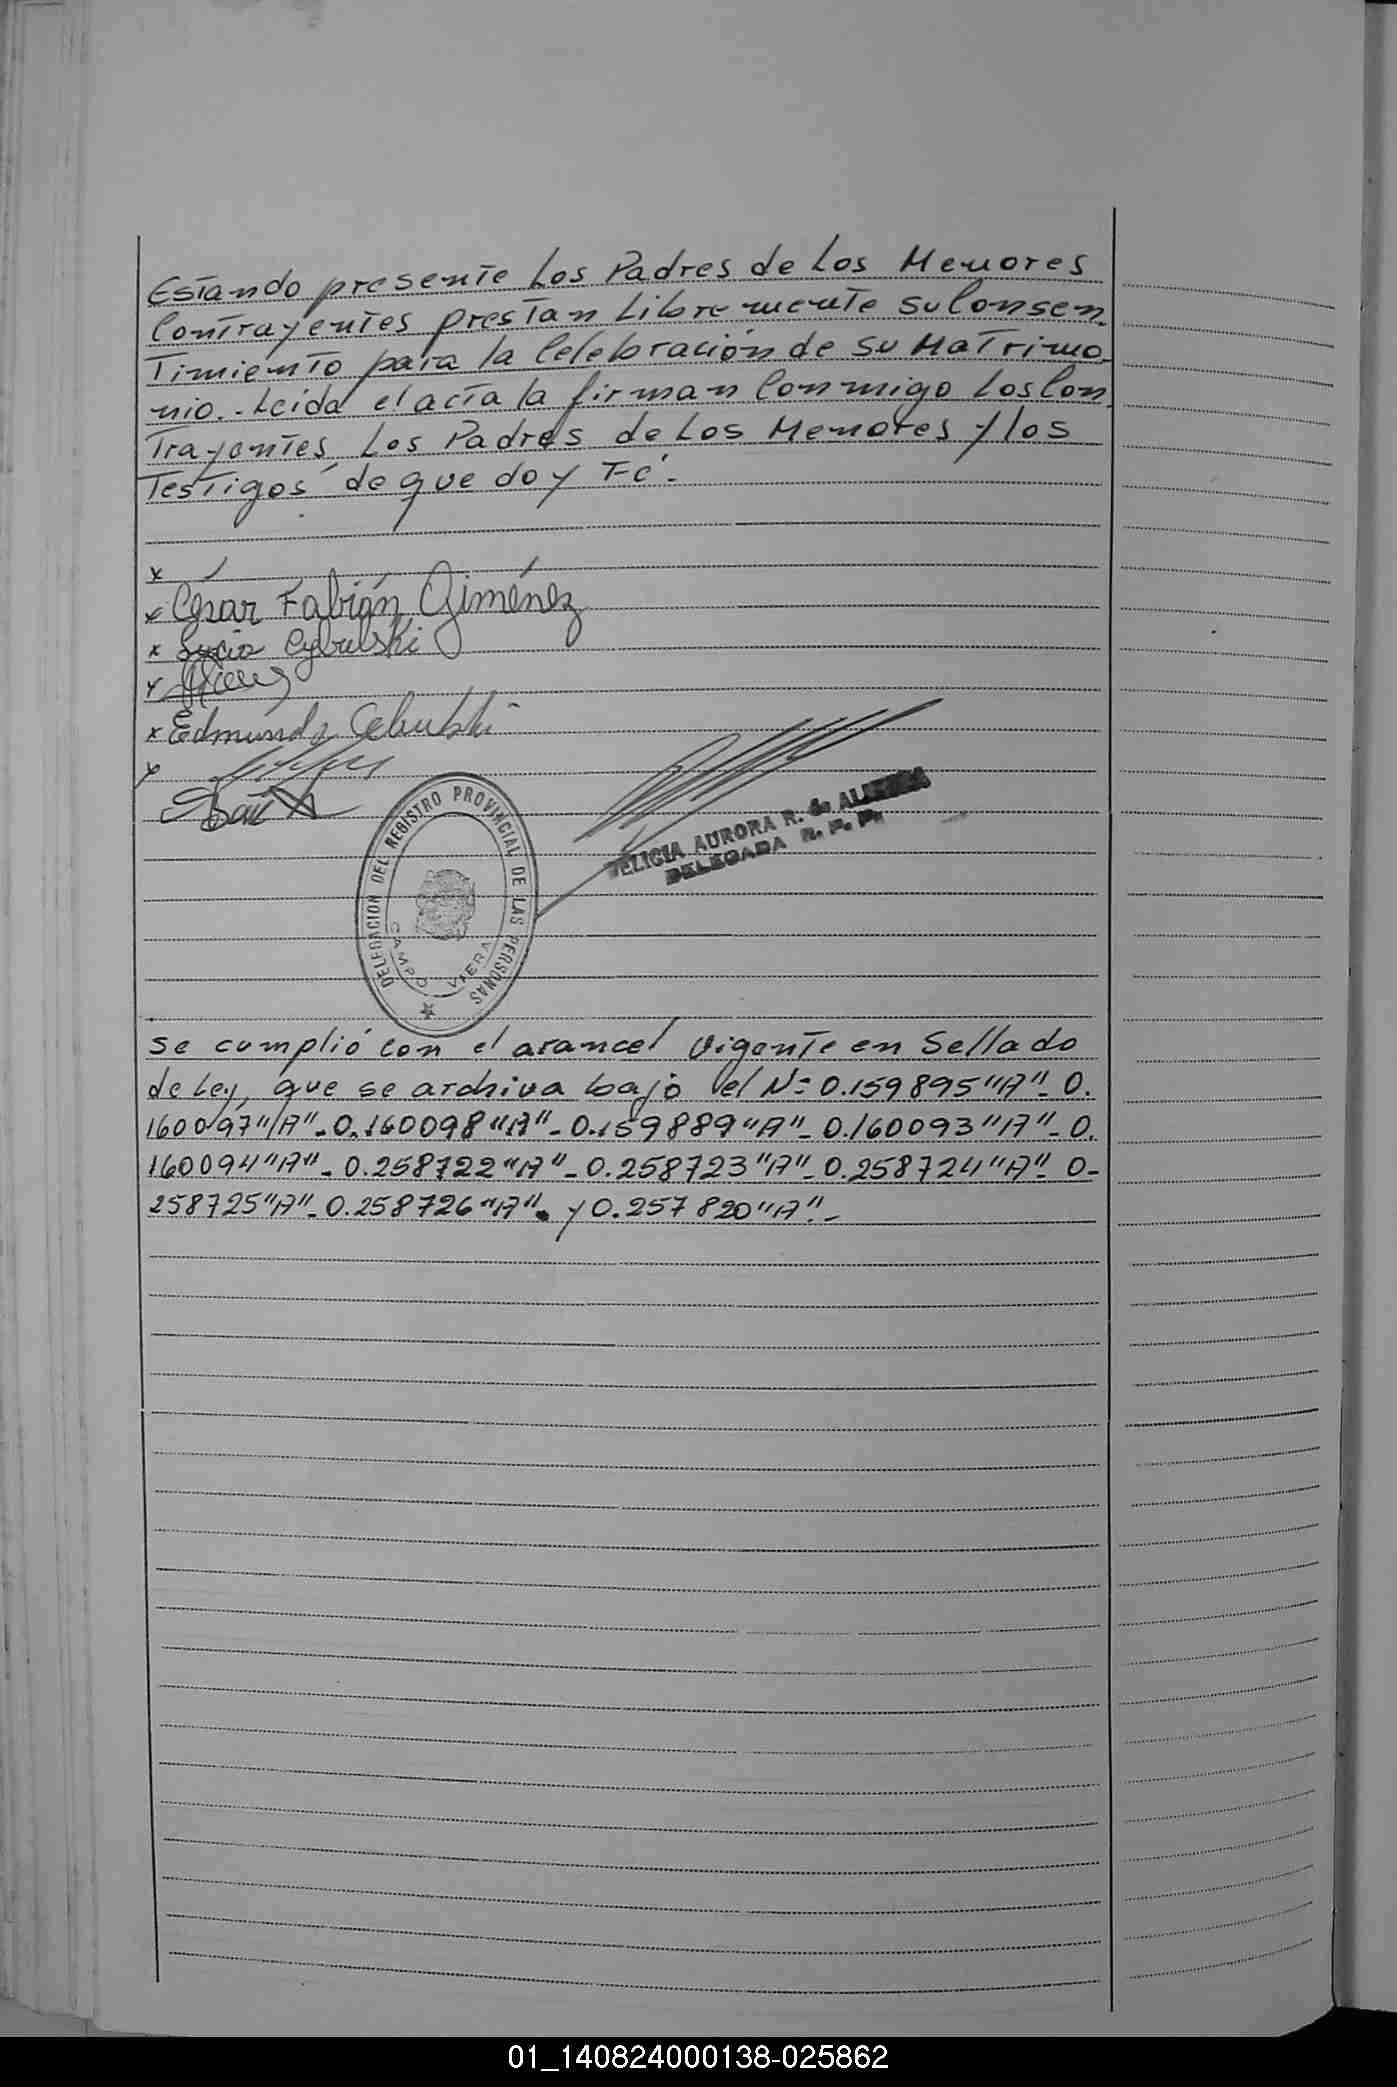 Estando presente Los Padres de Los Menores
Contrayentes prestan Libremente su Consen
Timiento para la Celebración de su Matrimo
nio.- Leida el acta la firman Conmigo Los Con
Trayentes, Los Padres de Los Menores y los
Testigos de que doy Fé.-
x
x César Fabián Giménez
x Lucia Cybulski
x
x Edmundo Cebulski
x
DELEGACION DEL REGISTRO PROVINCIAL DE LAS PERSONAS
CAMPO VIERA
FELICIA AURORA R. de
DELEGADA R. P. P.
se cumplió con el arancel vigente en Sellado
de Ley, que se archiva bajo el Nº 0.159895 "A"- 0.
160097 "A"- 0.160098 "A"- 0.159889 "A"- 0.160093 "A"- 0.
160094 "A"- 0.258722 "A"- 0.258723 "A"- 0.258724 "A"- 0-
258725 "A"- 0.258726 "A"- y 0.257820 "A".-
01_140824000138-025862